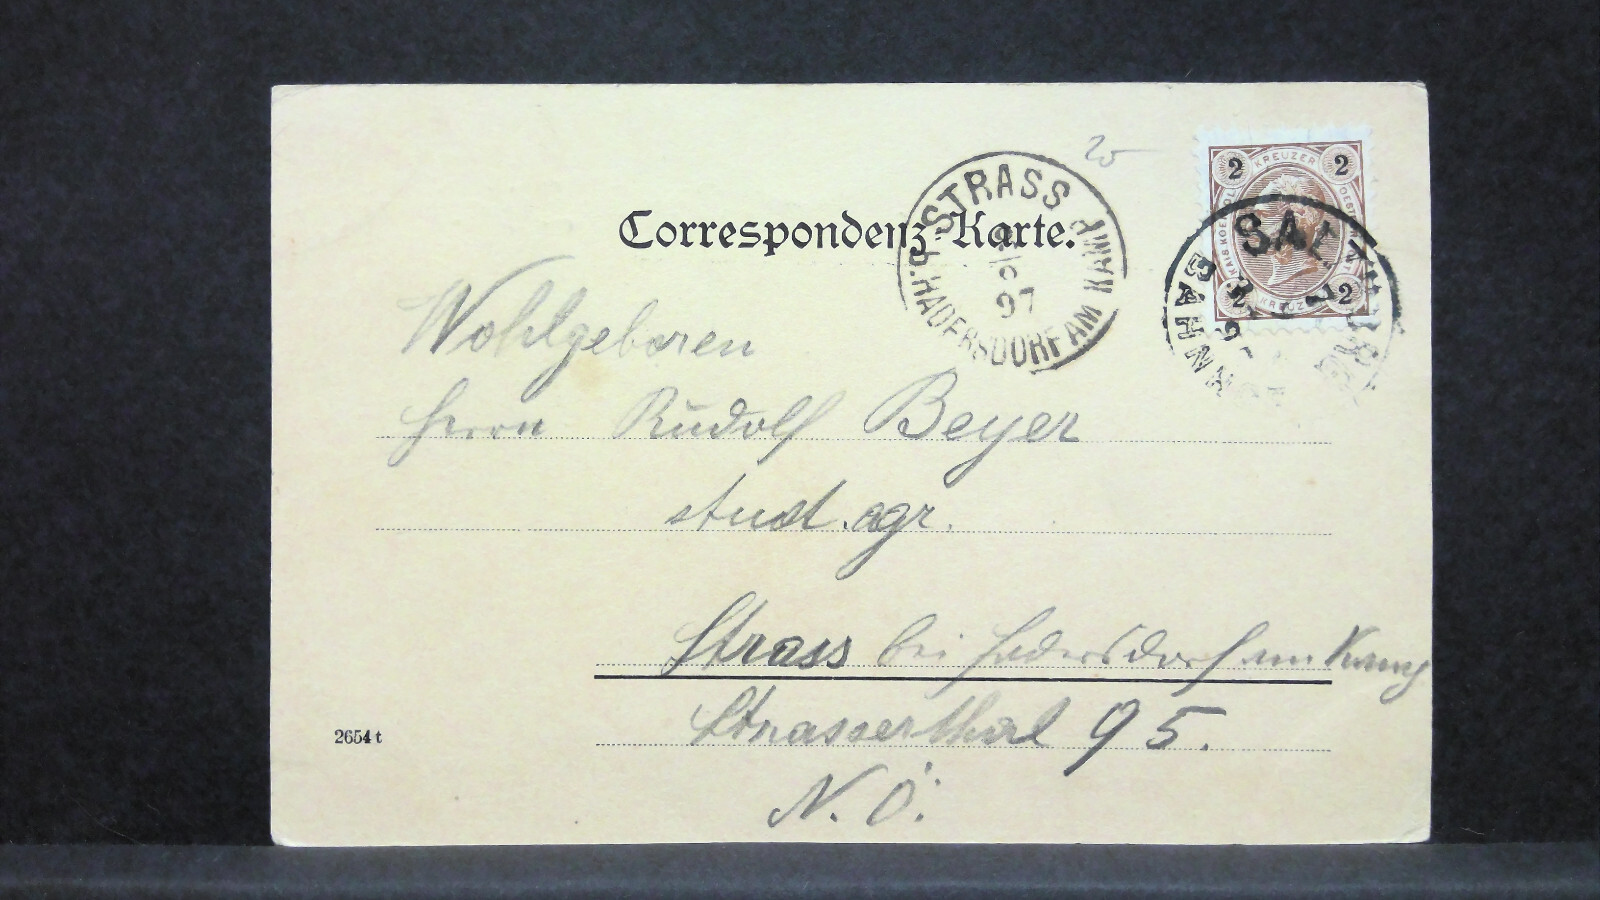 20
2 KREUZER 2
2 KREUZER 2
SALZBURG
BAHNHOF
STRASS
P. HADERSDORF AM KAMP
97
Correspondenz-Karte.
Wohlgeboren
Herrn Rudolf Beyer
stud. agr.
Strass bei Hadersdorf am Kamp
Strasserthal 95.
N. Ö.
2654 t